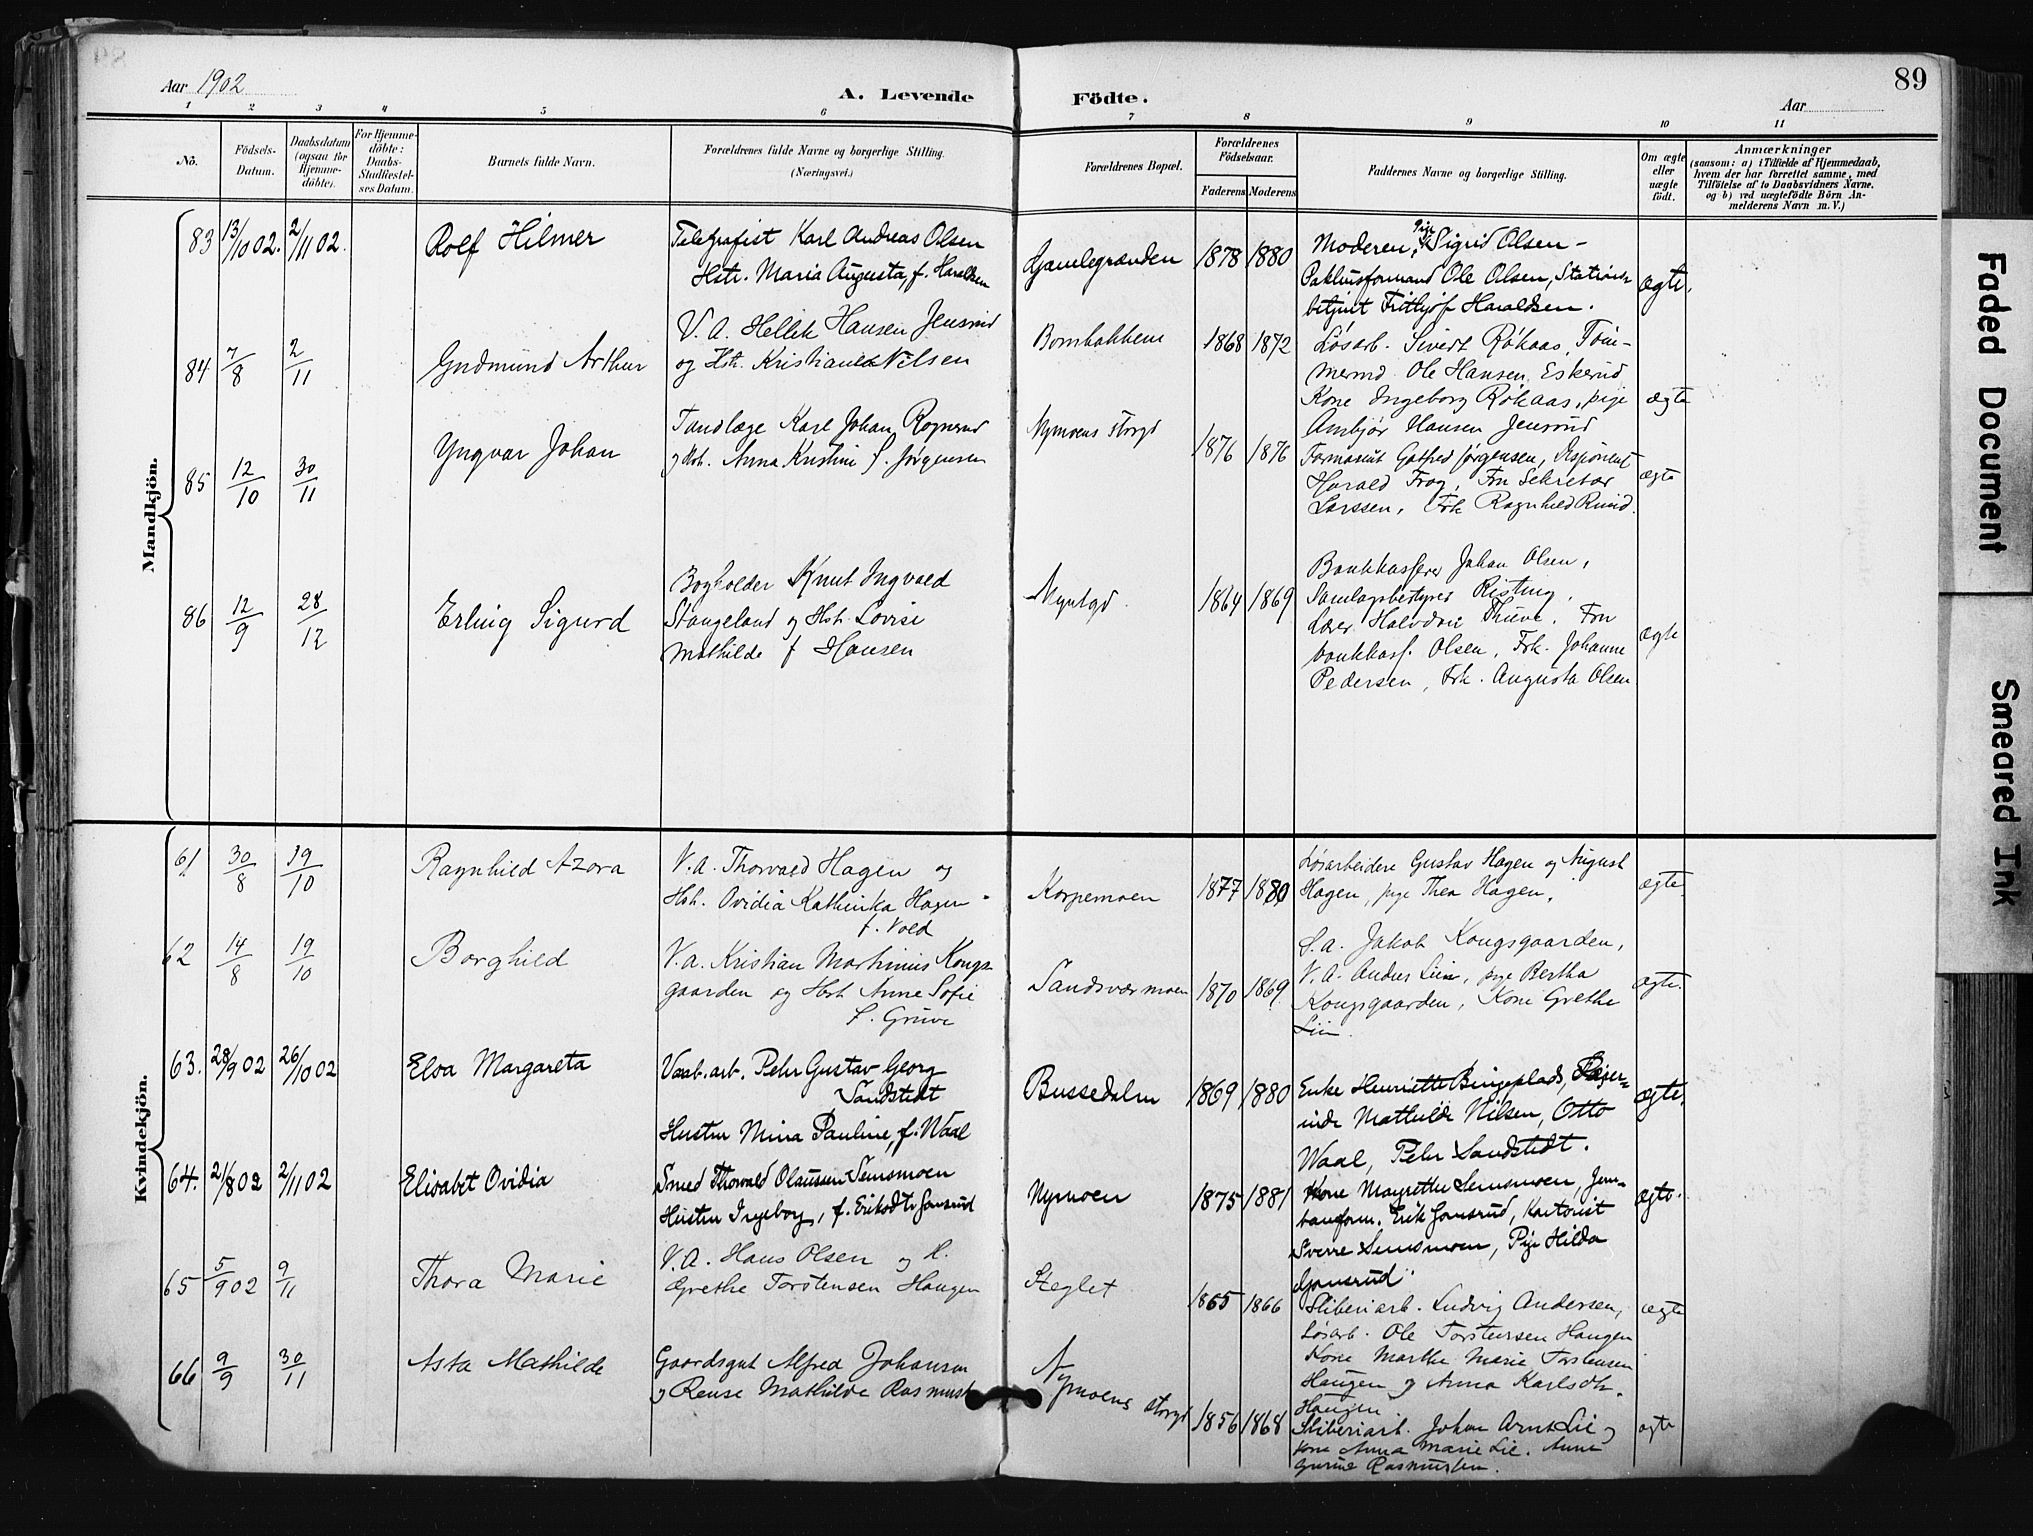 89
Aar 1902
A. Levende Födte.
Aar
1 2 3 4 5 6 7 8 9 10 11
Nö.
Födsels-Datum.
Daabsdatum (ogsaa for Hjemme-döbte).
For Hjemme-döbte: Daabs-Stadfæstel-ses Datum.
Barnets fulde Navn.
Forældrenes fulde Navne og borgerlige Stilling.
(Næringsvei.)
Forældrenes Bopæl.
Forældrenes Födselsaar.
Faderens Moderens
Faddernes Navne og borgerlige Stilling.
Om ægte eller uægte födt.
Anmærkninger
(saasom: a) i Tilfælde af Hjemmedaab,
hvem der har forrettet samme, med
Tilföielse af to Daabsvidners Navne,
og b) ved uægtefödte Börn An-
melderens Navn m. V.)
Mandkjön.
83 13/10 02. 2/11 02. Rolf Hilmer
Telegrafist Karl Andreas Olsen
Hstr. Maria Augusta, f. Haraldsen
Gamlegrænden 1878 1880
Moderen, Pige Sigrid Olsen -
Pakhusformand Ole Olsen, Stations-
betjent Frithjof Haraldsen.
ægte.
84 7/8 2/11 Gudmund Arthur
V. A. Hellik Hansen Jensrud
og Hst. Kristiane Nilsen
Bombakkene 1868 1872
Løsarb. Sivert Røkaas, Tøm-
mermd. Ole Hansen Eskerud
Kone Ingeborg Røkaas, pige
Ambjør Hansen Jensrud
ægte
85 12/10 30/11 Yngvar Johan
Tandlæge Karl Johan Rognerud
og Hst. Anna Kristine f. Jørgensen
Nymoens storgd 1876 1876
Farmaceut Gotfred Jørgensen, Disponent
Harald Frog, Fru Sekretær
Larssen, Frk Ragnhild Ruud.
ægte
86 12/9 28/12 Erling Sigurd
Bogholder Knut Ingvald
Stangeland og Hst. Lovise
Mathilde f Hansen
Myntgd. 1864 1869
Bankkasserer Johan Olsen,
Samlagsbestyrer Risting,
Lærer Halvdan Thieve, Fru
bankkass. Olsen, Frk. Johanne
Pedersen, Frk. Augusta Olsen
ægte
Kvindekjön.
61 30/8 19/10 Ragnhild Azora
V. a. Thorvald Hagen og
Hst. Ovidia Kathinka Hagen
f. Vold
Korpemoen 1877 1880
Løsarbeidere Gustav Hagen og August
Hagen, pige Thea Hagen.
ægte.
62 14/8 19/10 Borghild
V. a. Kristian Martinius Kongs-
gaarden og Hst Anne Sofie
f. Gruve
Sandsværmoen 1870 1869
S. a. Jakob Kongsgaarden,
V. A. Anders Lien, pige Bertha
Kongsgaarden, Kone Grethe
Lien.
ægte.
63. 28/9 02 26/10 02 Elsa Margareta
Vaab. arb. Pehr Gustav Georg
Sandstedt
Hustru Mina Pauline, f. Waal
Bussedalen 1869 1880
Enke Henriette Bingeplads, Bager-
inde Mathilde Nilsen, Otto
Waal, Pehr Sandstedt.
ægte.
64. 21/8 02 2/11 02 Elisabet Ovidia
Smed Thorvald Olaussen Semsmoen
Hustru Ingeborg, f. Eriksdtr Gamsrud
Nymoen 1875 1881
Kone Magrethe Semsmoen, Jern-
baneform. Erik Gomsrud, Kartonist
Sverre Semsmoen, Pige Hilda
Gomsrud.
ægte.
65 5/9 02 9/11 Thora Marie
V. A. Hans Olsen og H.
Grethe Torstensen Haugen
Steglet 1865 1866
Sliberiarb. Ludvig Andersen,
Løsarb. Ole Torstensen Haugen
Kone Marthe Marie Torstensen
Haugen og Anna Karlsdtr.
Haugen
ægte
66 9/9 30/11 Asta Mathilde
Gaardsgut Alfred Johansen
og Rense Mathilde Rasmusen
Nymoens storgd 1856 1868
Sliberiarb. Johan Arnt Lie og
kone Anna Marie Lie. Anne
Gurine Rasmussen.
ægte
Faded Document
Smeared Ink